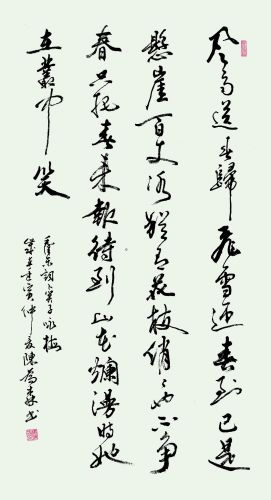 风雨送春歸飛雪迎春到已是
懸崖百丈冰猶有花枝俏々也不争
春只把春来報待到山花爛漫時她
在叢中笑
毛泽东詞卜算子咏梅
仲夏陳森书